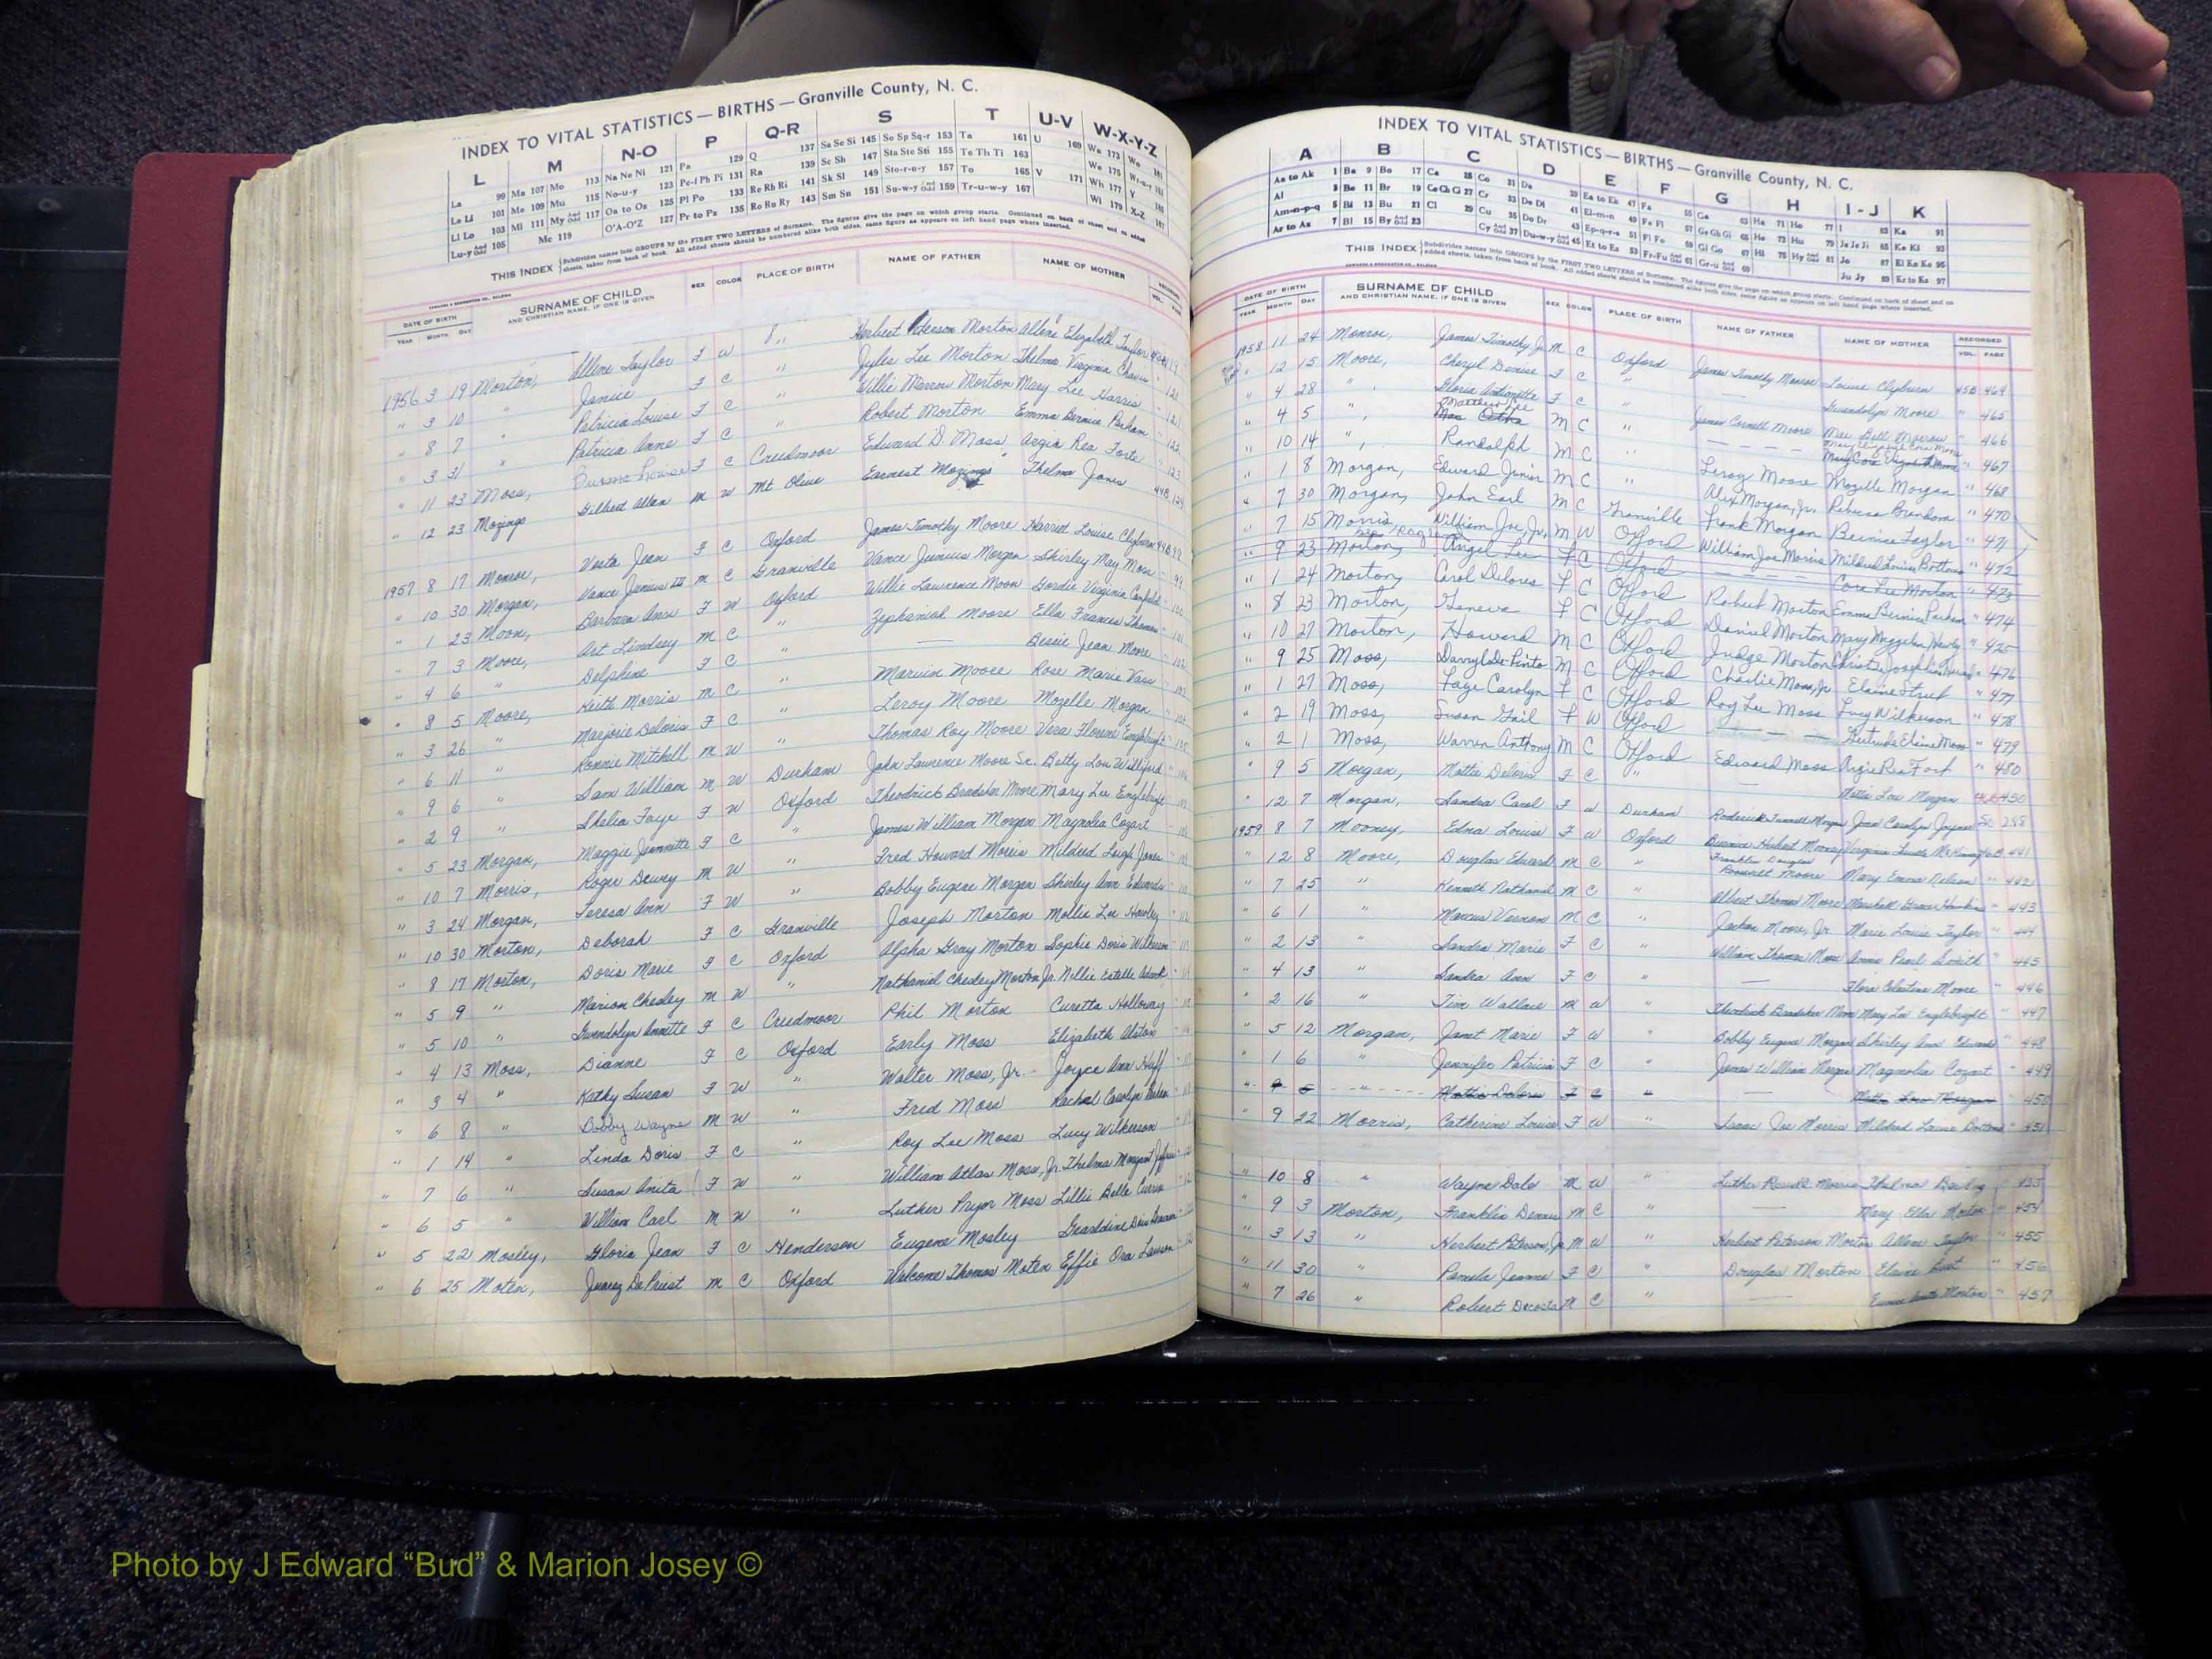 INDEX TO VITAL STATISTICS — BIRTHS — Granville County, N. C.
L M N-O P Q-R S T U-V W-X-Y-Z
La 99 Ma 107 Mo 113 Na Ne Ni 121 Pa 129 Q 137 Sa Se Si 145 So Sp Sq-r 153 Ta 161 U 169 Wa 173 Wo
Le Li 101 Me 109 Mu 115 No-u-y 123 Pe-f Ph Pi 131 Ra 139 Sc Sh 147 Sta Ste Sti 155 Te Th Ti 163 We 175
Ll Lo 103 Mi 111 My And Odd 117 Oa to Oz 125 Pl Po 133 Re Rh Ri 141 Sk Sl 149 Sto-r-u-y 157 To 165 V 171 Wh 177 Y
Lu-y And Odd 105 Mc 119 O'A-O'Z 127 Pr to Pz 135 Ro Ru Ry 143 Sm Sn 151 Su-w-y And Odd 159 Tr-u-w-y 167 Wi 179 X-Z
THIS INDEX Subdivides names into GROUPS by the FIRST TWO LETTERS of Surname. The figures give the page on which group starts. Continued on back of sheet and on added
sheets, taken from back of book. All added sheets should be numbered alike both sides, same figure as appears on left hand page where inserted.
DATE OF BIRTH SURNAME OF CHILD SEX COLOR PLACE OF BIRTH NAME OF FATHER NAME OF MOTHER
YEAR MONTH DAY AND CHRISTIAN NAME, IF ONE IS GIVEN VOL.
1956 3 19 Morton, Allene Taylor F W " Herbert Peterson Morton Allene Elizabeth Taylor
" 3 10 " Janice F C " Jyles Lee Morton Thelma Virginia Chavis
" 8 7 " Patricia Louise F C " Willie Marrow Morton Mary Lee Harris 121
" 3 31 " Patricia Anne F C " Robert Morton Emma Bernice Parham 122
" 11 23 Moss, F C Creedmoor Edward D. Moss Argia Rea Forte 123
" 12 23 Mozingo Gilbert Allen M W Mt Olive Earnest Mozingo Thelma Jones
1957 8 17 Monroe, Vesta Jean F C Oxford James Timothy Moore Harriet Louise Clyburn
" 10 30 Morgan, Vance Junius III M C Granville Vance Junius Morgan Shirley May Moss
" 1 23 Moon, Barbara Ann F W Oxford Willie Lawrence Moon Gordie Virginia
" 7 3 Moore, Art Lindsey M C " Zephanial Moore Ella Frances Thomas
" 4 6 " Delphine F C " — Bessie Jean Moore
" 8 5 Moore, Keith Morris M C " Marvin Moore Rose Marie Vass
" 3 26 " Marjorie Deloris F C " Leroy Moore Mozelle Morgan
" 6 11 " Ronnie Mitchell M W " Thomas Roy Moore Vera Florine
" 9 6 " Sam William M W Durham John Lawrence Moore Sr. Betty Lou Williford
" 2 9 " Shelia Faye F W Oxford Theodrick Bradsher Moore Mary Lee Englebright
" 5 23 Morgan, Maggie Jeannette F C " James William Morgan Magnolia Cozart
" 10 7 Morris, Roger Dewey M W " Fred Howard Morris Mildred Leigh Jones
" 3 24 Morgan, Teresa Ann F W " Bobby Eugene Morgan Shirley Ann Edwards
" 10 30 Morton, Deborah F C Granville Joseph Morton Mollie Lee Hawley
" 8 17 Morton, Doris Marie F C Oxford Alpha Gray Morton Sophie Doris Wilkerson
" 5 9 " Marion Chesley M W " Nathaniel Chesley Morton Jr. Nillie Estelle
" 5 10 " Gwendolyn Annette F C Creedmoor Phil Morton Curetta Holloway
" 4 13 Moss, Dianne F C Oxford Early Moss Elizabeth Alston
" 3 4 " Kathy Susan F W " Walter Moss, Jr. Joyce Ann Huff
" 6 8 " Bobby Wayne M W " Fred Moss Rachel Carolyn
" 1 14 " Linda Doris F C " Roy Lee Moss Lucy Wilkerson
" 7 6 " Susan Anita F W " William Atlas Moss, Jr. Thelma Margaret
" 6 5 " William Carl M W " Luther Pryor Moss Lillie Belle Currin
" 5 22 Mosley, Gloria Jean F C Henderson Eugene Mosley Gearldine
" 6 25 Moten, Juarez DePriest M C Oxford Welcome Thomas Moten Effie Ora Lawson
INDEX TO VITAL STATISTICS — BIRTHS — Granville County, N. C.
A B C D E F G H I-J K
Aa to Ak 1 Ba 9 Bo 17 Ca 25 Co 31 Da 39 Ea to Ek 47 Fa 55 Ga 63 Ha 71 Ho 77 I 83 Ka 91
Al 3 Be 11 Br 19 Ce Ch G 27 Cr 33 De Di 41 El-m-n 49 Fe Fi 57 Ge Gh Gi 65 He 73 Hu 79 Ja Je Ji 85 Ke Ki 93
Am-n-p-q 5 Bi 13 Bu 21 Cl 29 Cu 35 Do Dr 43 Ep-q-r-s 51 Fl Fo 59 Gl Go 67 Hi 75 Hy And Odd 81 Jo 87 Kl Kn Ko 95
Ar to Az 7 Bl 15 By And Odd 23 Cy And Odd 37 Du-w-y And Odd 45 Et to Ez 53 Fr-Fu And Odd 61 Gr-u And Odd 69 Ju Jy 89 Kr to Kz 97
THIS INDEX Subdivides names into GROUPS by the FIRST TWO LETTERS of Surname. The figures give the page on which group starts. Continued on back of sheet and on
added sheets, taken from back of book. All added sheets should be numbered alike both sides, same figure as appears on left hand page where inserted.
DATE OF BIRTH SURNAME OF CHILD SEX COLOR PLACE OF BIRTH NAME OF FATHER NAME OF MOTHER RECORDED
YEAR MONTH DAY AND CHRISTIAN NAME, IF ONE IS GIVEN VOL. PAGE
1958 11 24 Monroe, James Timothy Jr. M C Oxford James Timothy Monroe Louise Clyburn 45B 464
" 12 15 Moore, Cheryl Denise F C " — Gwendolyn Moore " 465
" 4 28 " Gloria Antionette F C " James Cornell Moore Mae Bell Morrow " 466
" 4 5 " Matthew Lee M C " — " 467
" 10 14 " Randolph M C " Leroy Moore Mozelle Morgan " 468
" 1 8 Morgan, Edward Junior M C " Alex Morgan, Jr. Rebecca Brandon " 470
" 7 30 Morgan, John Earl M C Granville Frank Morgan Bernice Taylor " 471
" 7 15 Morris, William Joe, Jr. M W Oxford William Joe Morris Mildred Louise Bottoms " 472
" 9 23 Morton, Angel Lee F C Oxford — Cora Lee Morton " 473
" 1 24 Morton, Carol Delores F C Oxford Robert Morton Emma Bernice Parham " 474
" 8 23 Morton, Geneva F C Oxford Daniel Morton Mary Magzelia " 475
" 10 27 Morton, Howard M C Oxford Judge Morton Christie Josephine " 476
" 9 25 Moss, Darryl De-Pinto M C Oxford Charlie Moss, Jr Elaine " 477
" 1 27 Moss, Faye Carolyn F C Oxford Roy Lee Moss Lucy Wilkerson " 478
" 2 19 Moss, Susan Gail F W Oxford — Gertrude Elaine Moss " 479
" 2 1 Moss, Warren Anthony M C Oxford Edward Moss Argie Rea Fort " 480
" 9 5 Morgan, Mattie Deloris F C " — Mattie Lou Morgan 450
" 12 7 Morgan, Sandra Carol F W Durham Roderick Morgan Jean Carolyn Joyner 288
1959 8 7 Mooney, Edna Louise F W Oxford Bernice Herbert Mooney Virginia 441
" 12 8 Moore, Douglas Edward M C " Franklin Douglas Roosevelt Moore Mary Emma Nelson " 442
" 7 25 " Kenneth Nathaniel M C " Albert Thomas Moore " 443
" 6 1 " Marcus Vernon M C " Jackson Moore, Jr. Marie Louise Taylor " 444
" 2 13 " Sandra Marie F C " William Thomas Moore Annie Pearl Smith " 445
" 4 13 " Sandra Ann F C " — Flora Celestine Moore " 446
" 2 16 " Tim Wallace M W " Theodrick Bradsher Moore Mary Lee Englebright " 447
" 5 12 Morgan, Janet Marie F W " Bobby Eugene Morgan Shirley Ann Edwards " 448
" 1 6 " Jennifer Patricia F C " James William Morgan Magnolia Cozart " 449
" 9 5 " Mattie Deloris F C " — Mattie Lou Morgan " 450
" 9 22 Morris, Catherine Louise F W " Isaac Joe Morris Mildred Louise Bottoms " 451
" 10 8 " Wayne Dale M W " Luther Morris Thelma 453
" 9 3 Morton, Franklin Dennis M C " — Mary Ella Morton " 454
" 3 13 " Herbert Peterson, Jr. M W " Herbert Peterson Morton Allene Taylor " 455
" 11 30 " Pamela Jeanne F C " Douglas Morton Elaine " 456
" 7 26 " Robert M C " — Morton " 457
Photo by J Edward “Bud” & Marion Josey ©